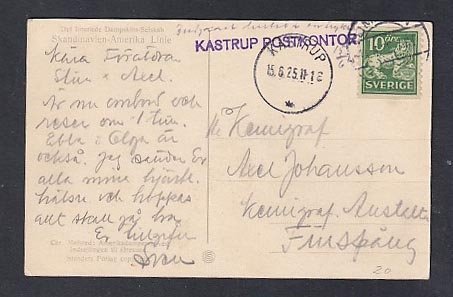 Det forenede Dampskibs-Selskab
Skandinavien-Amerika Linie
KASTRUP POSTKONTOR
KASTRUP
15.6.25.11-12
10 ÖRE
SVERIGE
Kära Föräldrar
Stina & Axel.
Är nu ombord och
reser om 1 tim.
Ebba & Olga är
också. Jag sänder Er
alla mina hjärtl.
hälsn och hoppas
allt skall gå bra
Er tillgifne
Sven
Hr Kemigraf
Axel Johansson
Kemigraf. Anstalten
Finspång
20